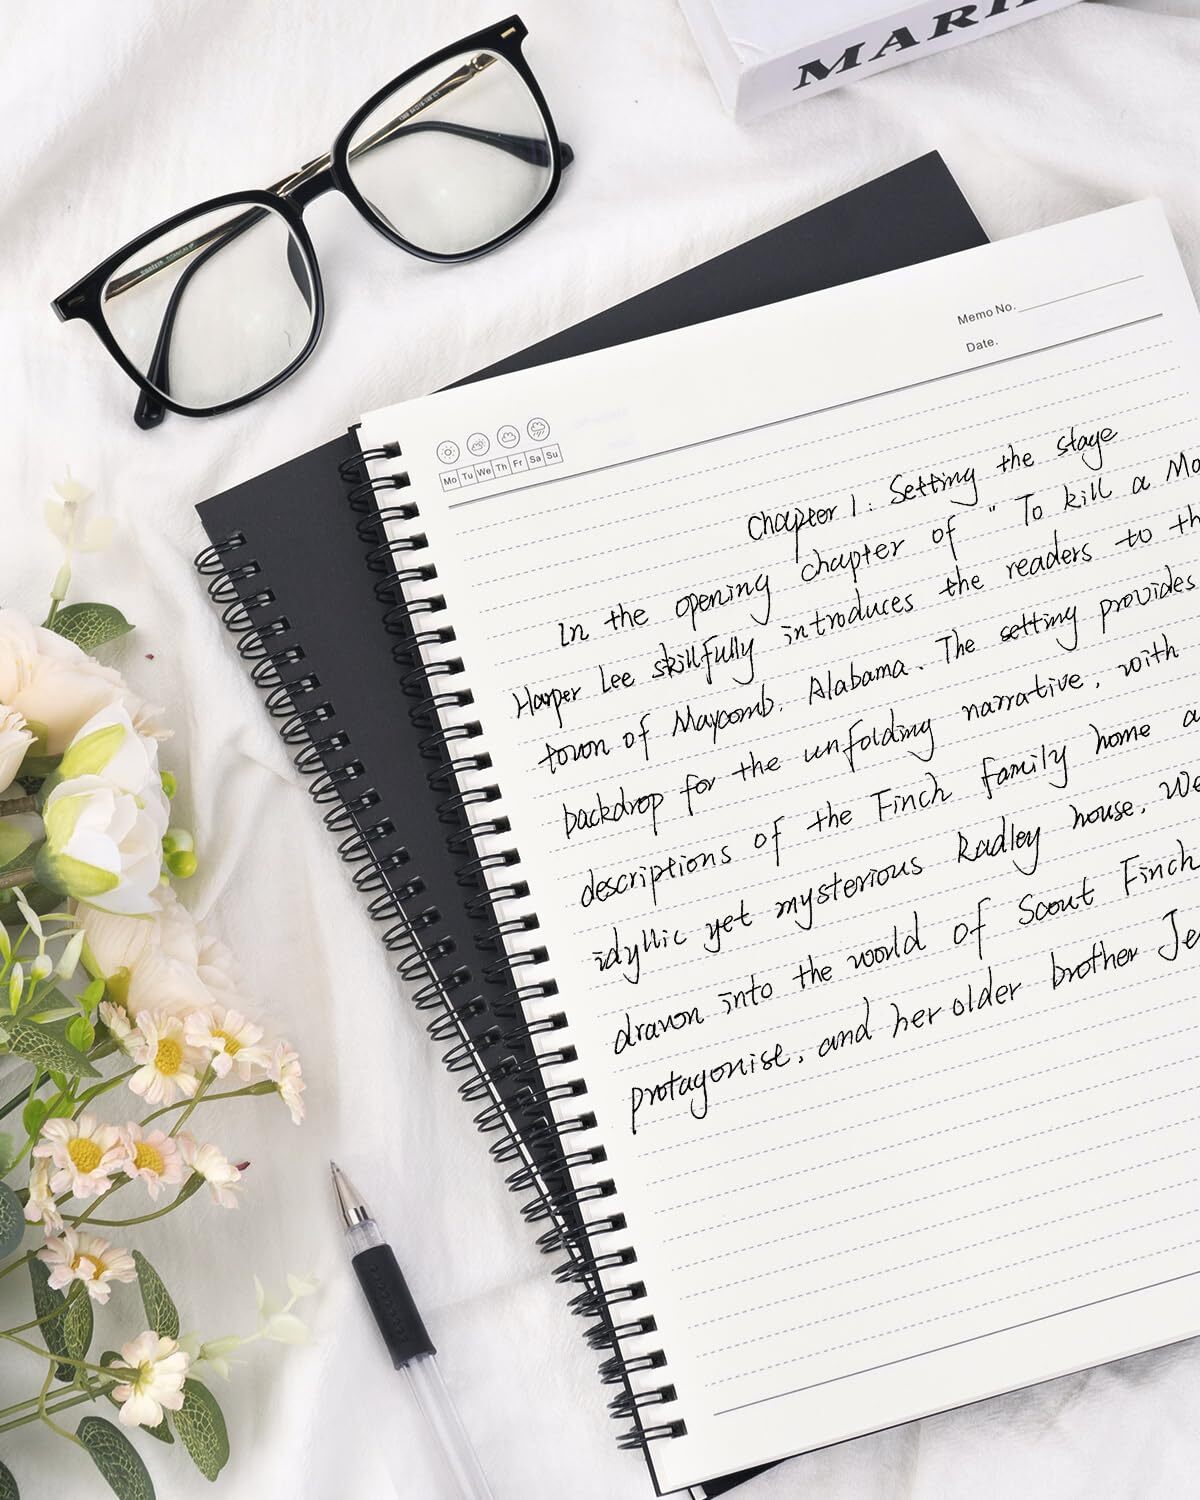 MARI
Memo No.
Date.
Mo Tu We Th Fr Sa Su
Chapter 1: Setting the stage
In the opening chapter of "To kill a Mo
Harper Lee skillfully introduces the readers to th
town of Maycomb. Alabama. The setting provides
backdrop for the unfolding narrative, with
descriptions of the Finch family home a
idyllic yet mysterious Radley house. We
drawn into the world of Scout Finch
protagonise, and her older brother Je